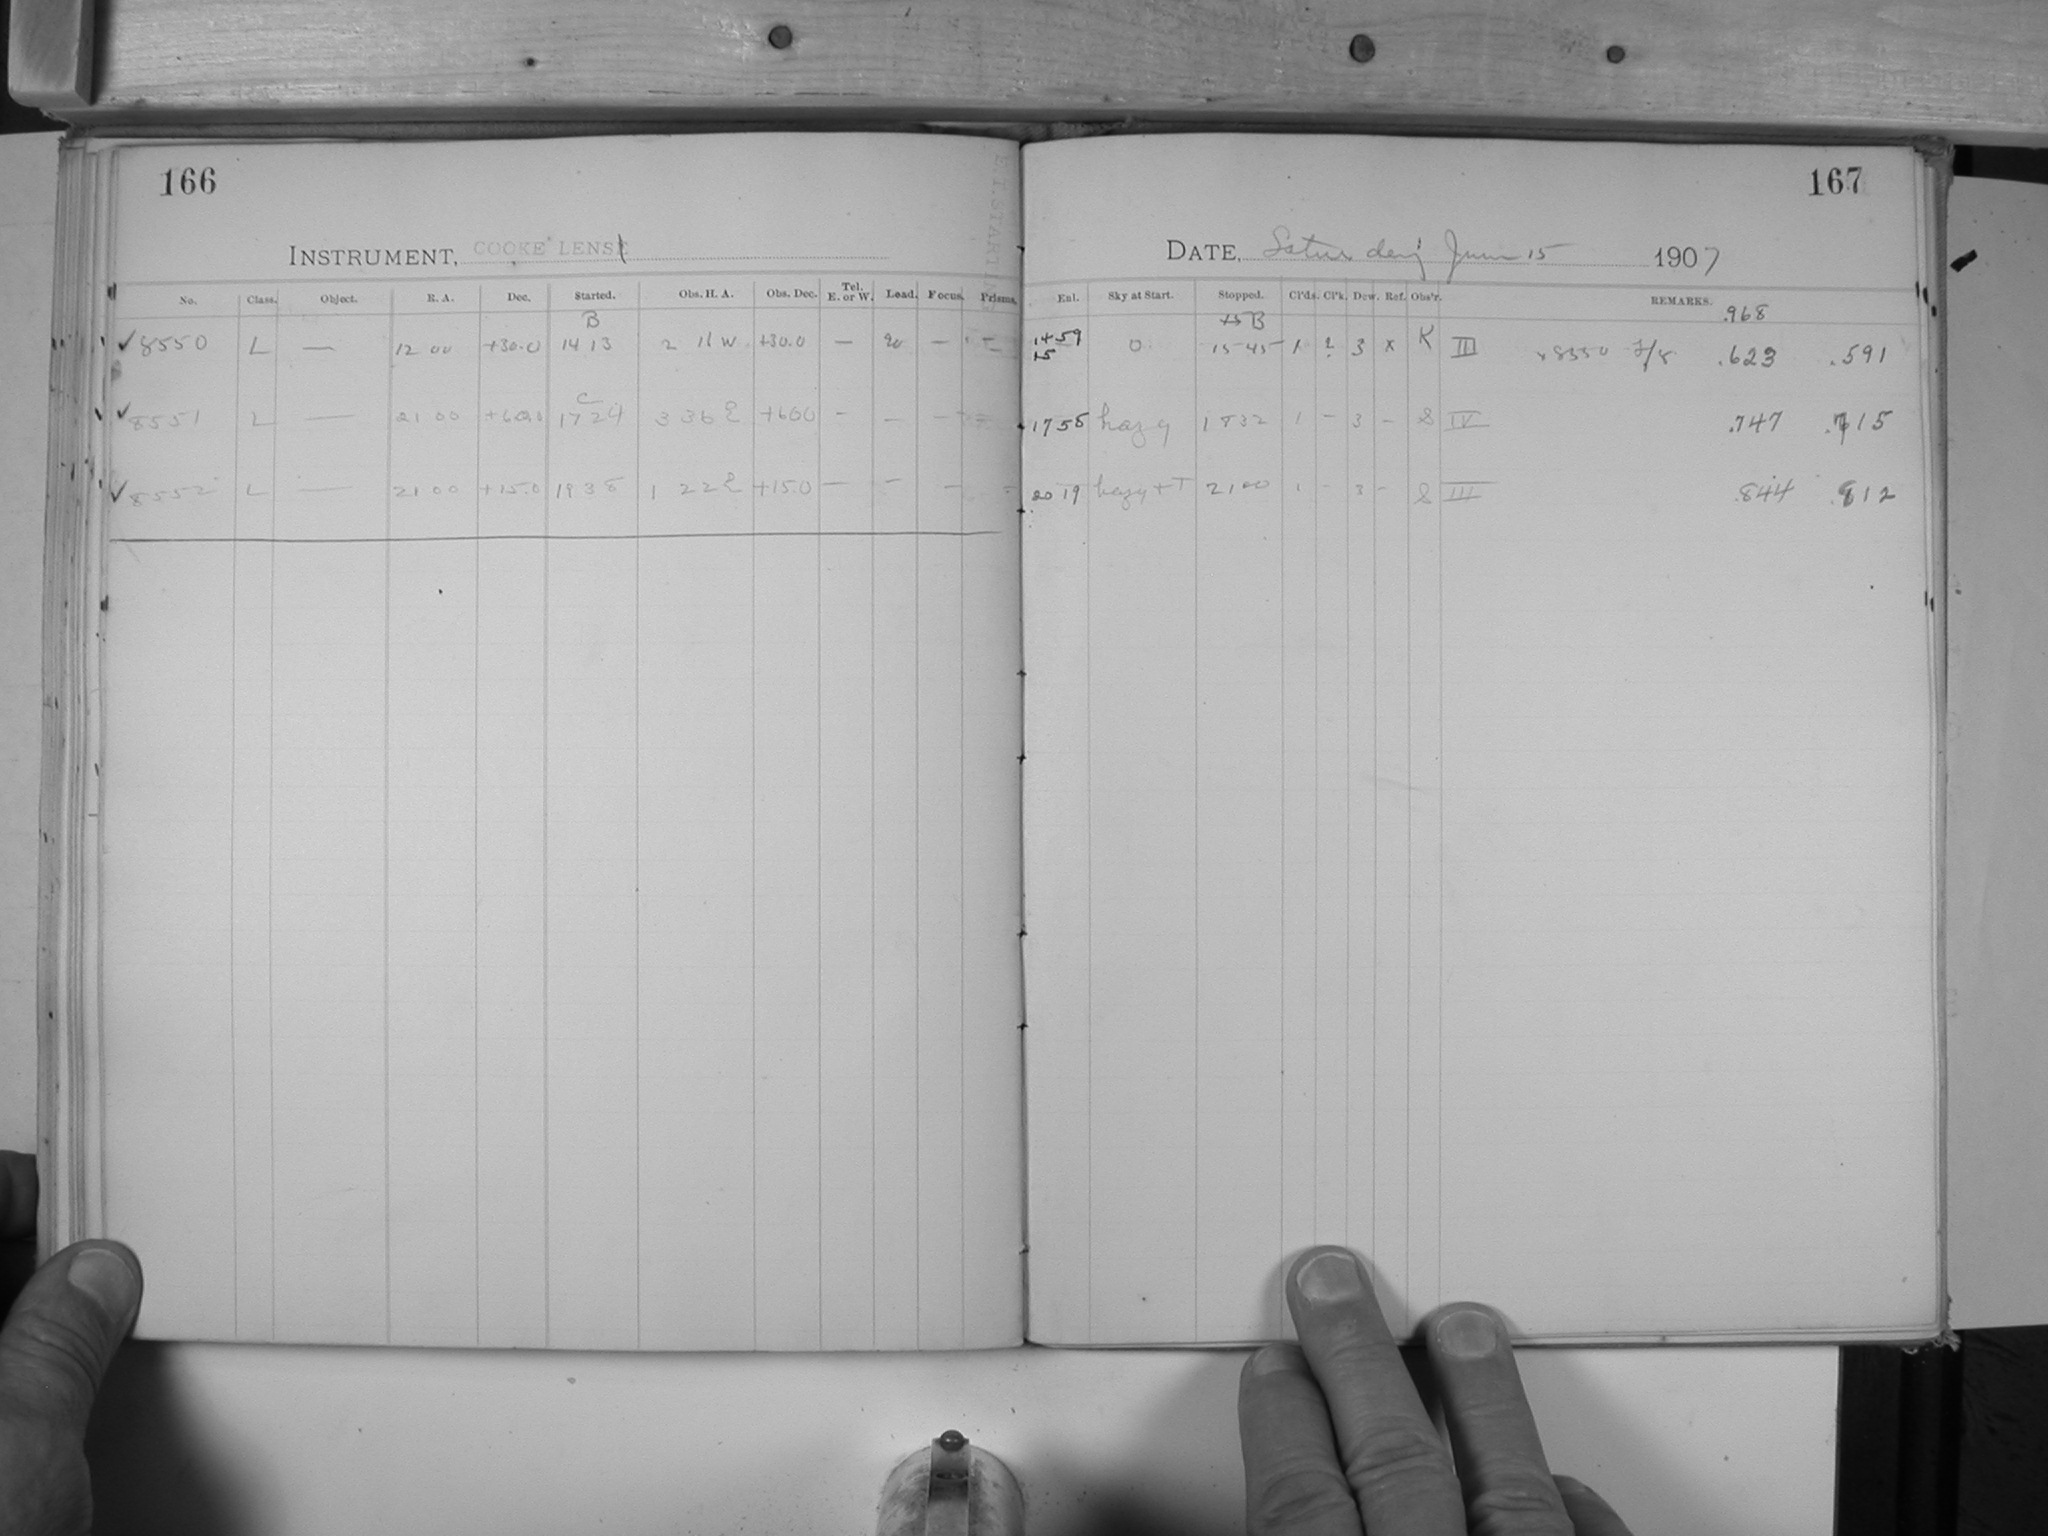 166
INSTRUMENT, COOKE LENS
No. Class. Object. R. A. Dec. Started. Obs. H. A. Obs. Dec. Tel. E. or W. Lead. Focus. Prisms.
B
✓ 8550 L — 12 00 +30.0 14 13 2 11 W +30.0 — 20 — —
C
✓ 8551 L — 21 00 +60.0 17 24 3 36 E +60.0 — — — —
✓ 8552 L — 21 00 +15.0 19 38 1 22 E +15.0 — — —
167
DATE, Saturday June 15 1907
Exl. Sky at Start. Stopped. Cl'ds. Cl'k. Dew. Ref. Obs'r. REMARKS.
B .968
1459 0 15 45 1 2 3 x K III x8550 7/8 .623 .591
15
1758 hazy 1832 1 — 3 — S IV .747 .715
20 19 hazy + T 21 00 1 — 3 — S III .844 .812